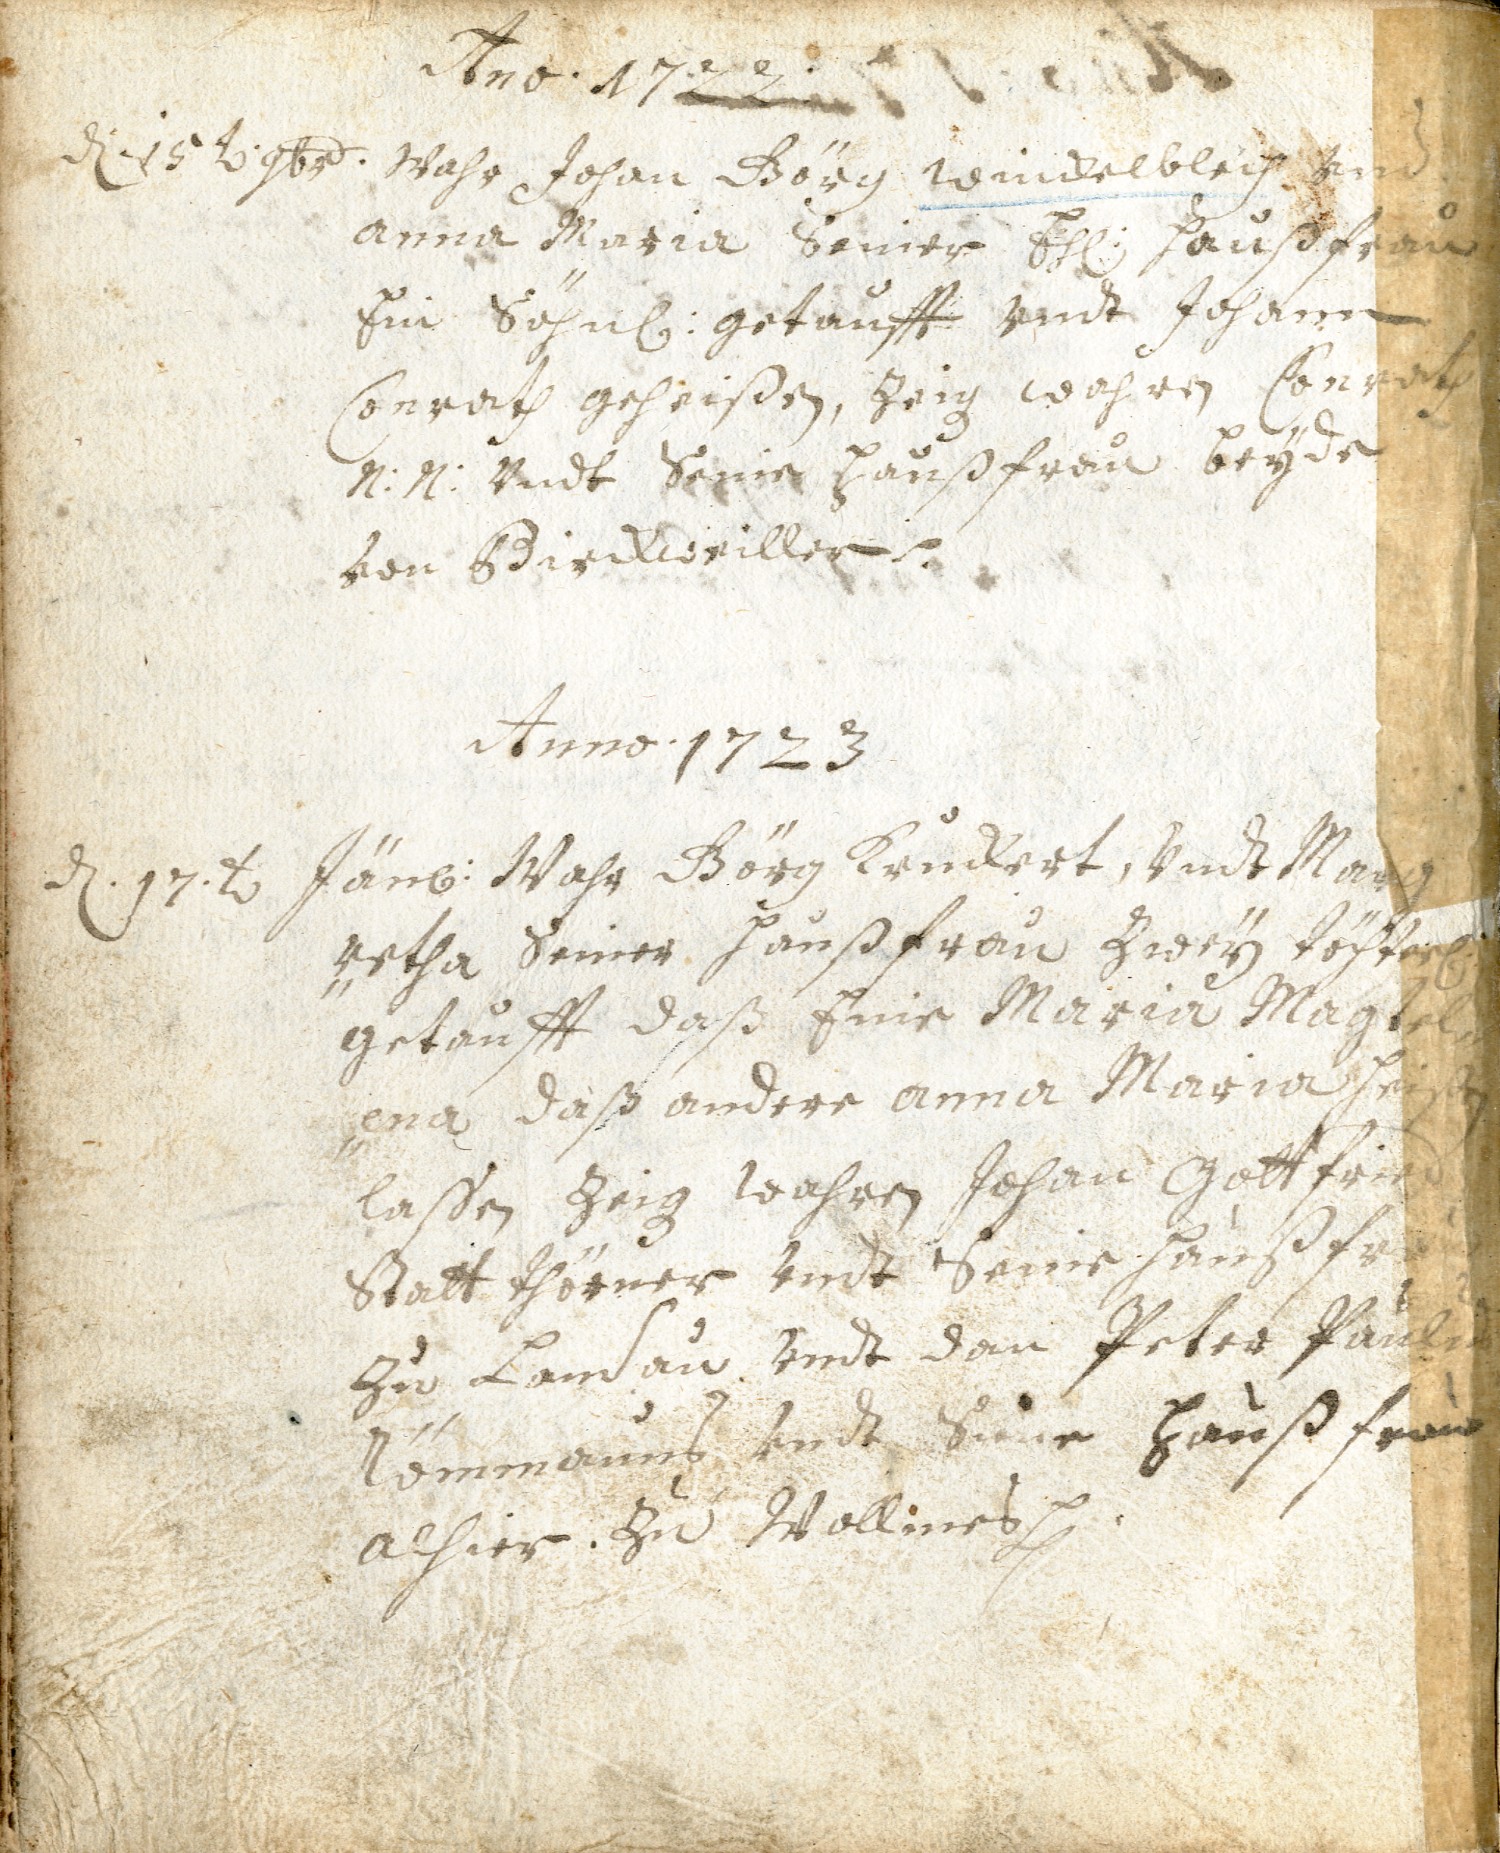 Ano. 1722.
d. 15 t. 9br. Wahr Johan Görg windelbleich vnd
anna Maria Seiner Ehl: haußfrau
Ein Söhnl: getaufft vndt Johann
Conrath geheißen, Zeig wahren Conrath
N: N: vndt Seine haußfrau beÿde
von Birckweiller.
Anno. 1723
d. 17. t Jän: Wahr Görg Kruckert, vndt Marg
retha Seiner haußfrau Zweÿ töchterl:
getaufft daß Eine Maria Magtel
ena daß andere anna Maria heißen
lassen Zeig wahren Johan Gottfried
Statt thörner vndt Seine haußfrau
Zu Landau vndt dan Peter Pauli
vndt Seine haußfrau
alhier. Zu Wollmesh.